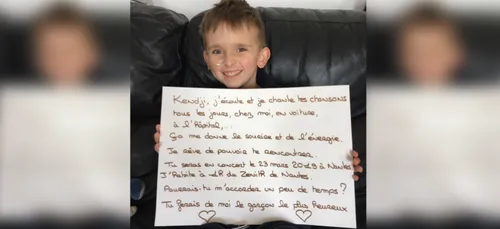 Kendji, j'écoute et je chante tes chansons
tous les jours, chez moi, en voiture,
à l'hôpital,...
Ça me donne le sourire et de l'énergie.
Je rêve de pouvoir te rencontrer.
Tu seras en concert le 23 mars 2019 à Nantes
J'habite à 1H du Zénith de Nantes.
Pourrais-tu m'accorder un peu de temps ?
Tu ferais de moi le garçon le plus heureux